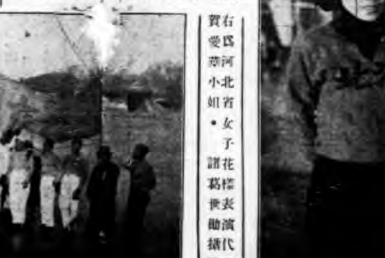 右爲河北省女子花樣表演代
賀愛華小姐・諸葛世勛攝